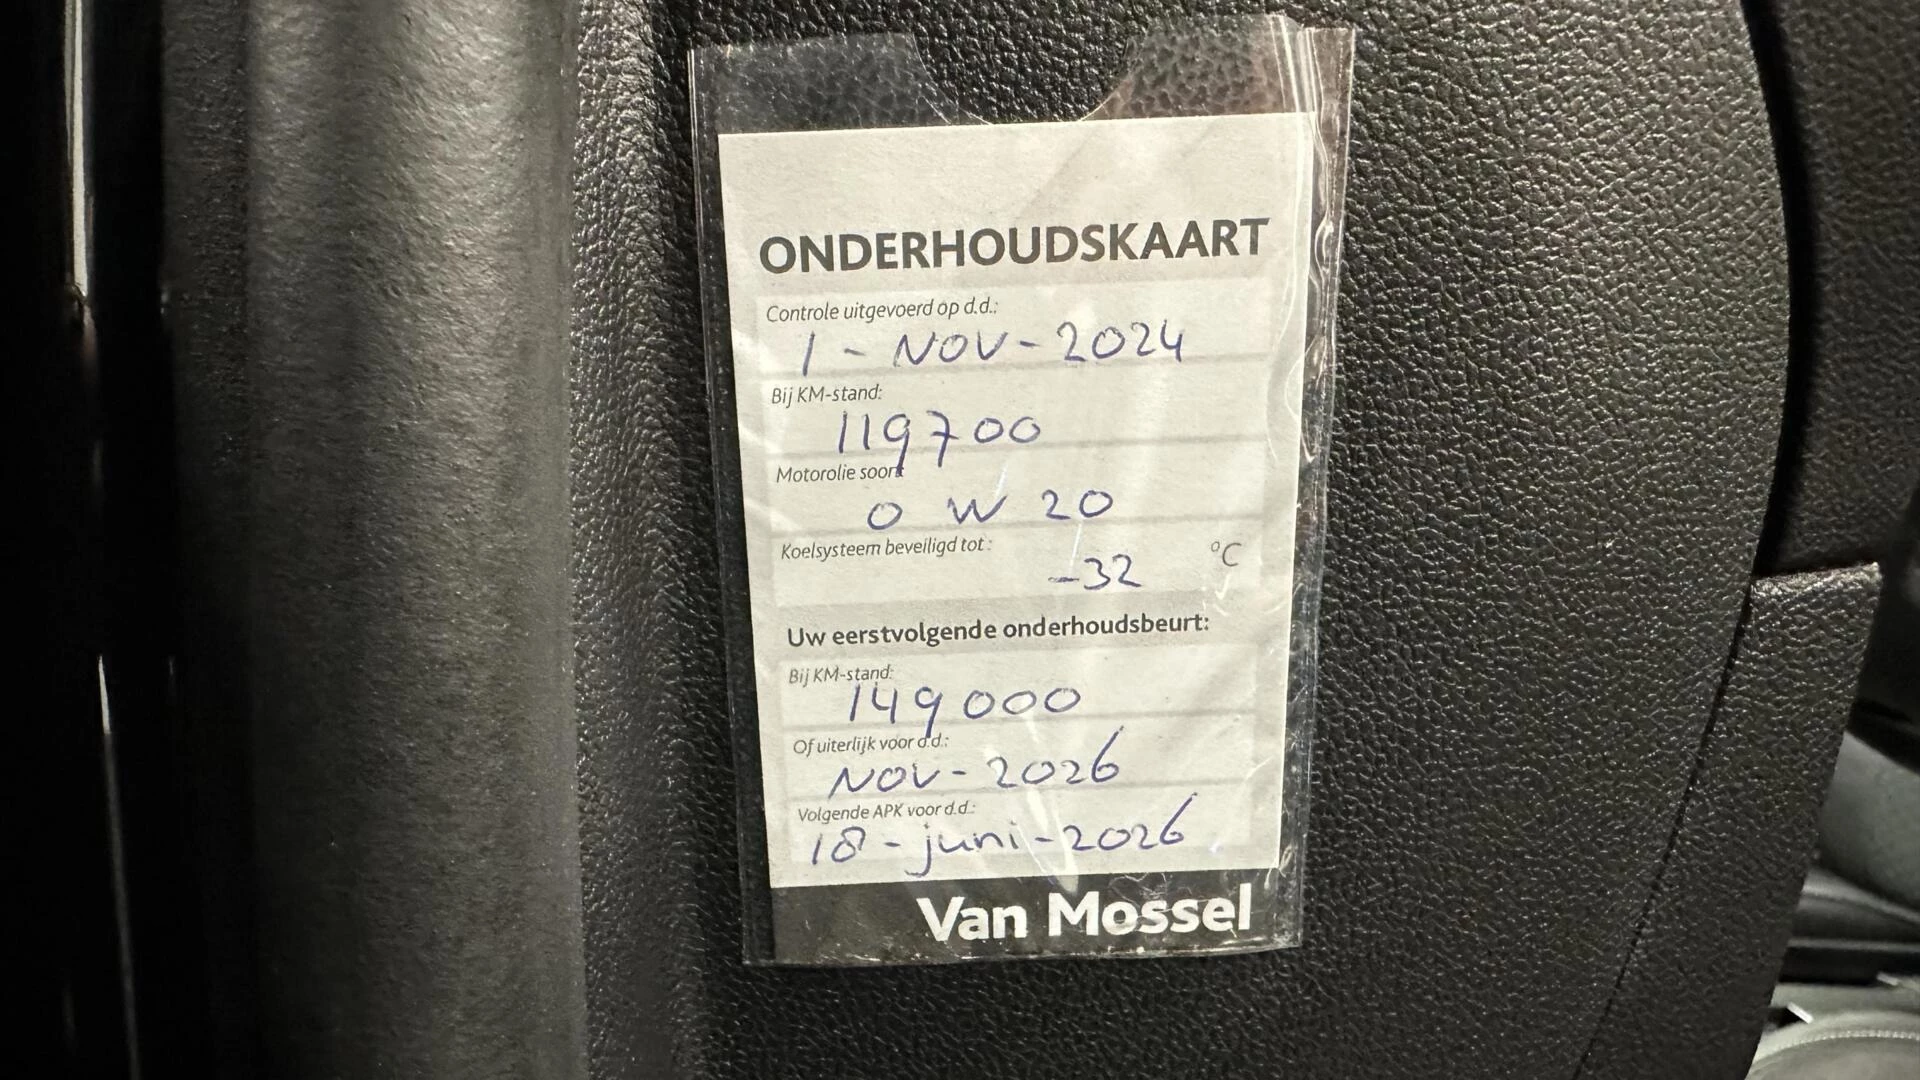 ONDERHOUDSKAART
Controle uitgevoerd op d.d.:
1 - NOV - 2024
Bij KM-stand:
119700
Motorolie soort
0 W 20
Koelsysteem beveiligd tot :
-32 °C
Uw eerstvolgende onderhoudsbeurt:
Bij KM-stand:
149000
Of uiterlijk voor d.d.:
NOV - 2026
Volgende APK voor d.d.:
18 - juni - 2026
Van Mossel